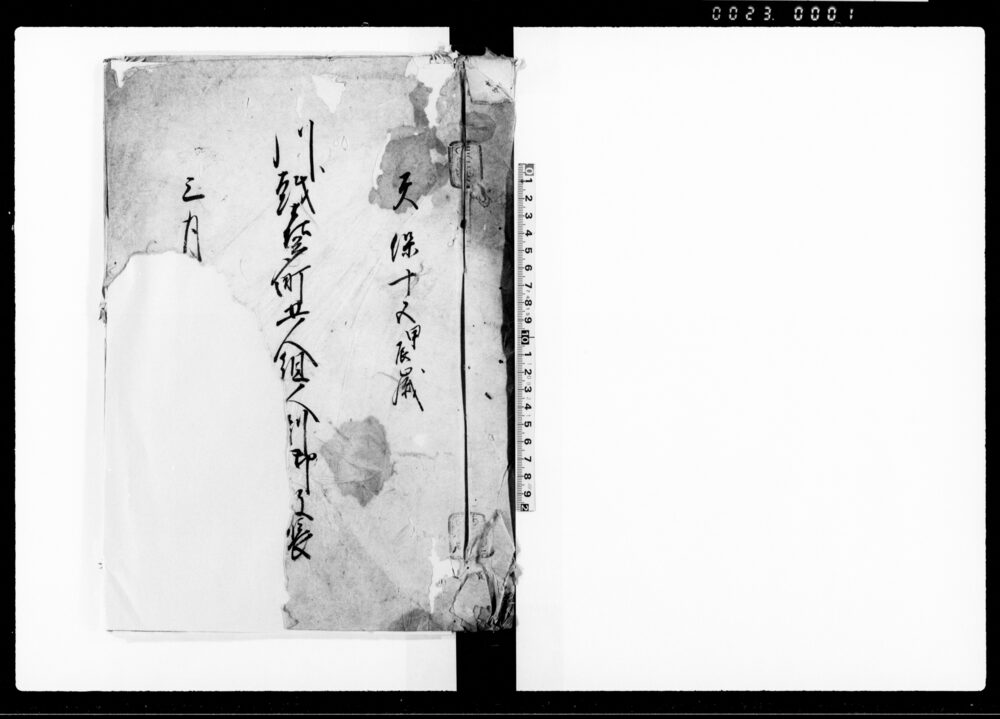 0023 0001
天保十五甲辰歳
川越町五人組人別御改帳
三月
0 1 2 3 4 5 6 7 8 9 10 1 2 3 4 5 6 7 8 9 2